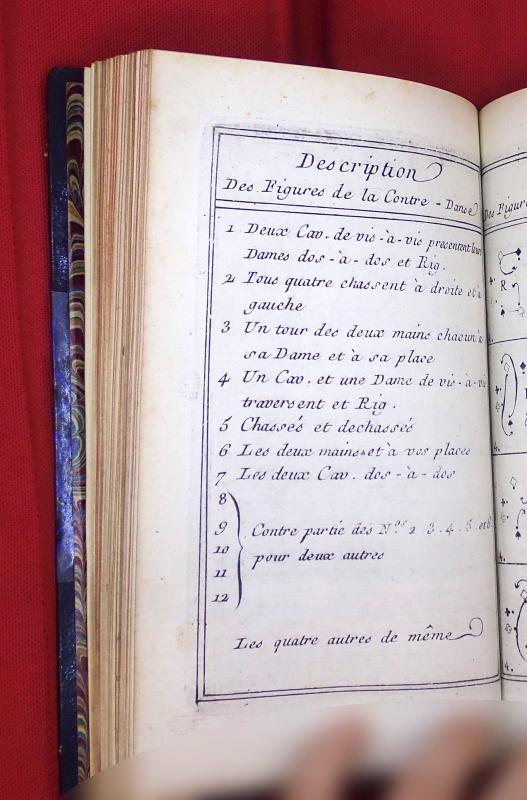 Description
Des Figures de la Contre-Danse
1 Deux Cav. de vis-à-vis presentent leurs
Dames dos-à-dos et Rig.
2 Tous quatre chassent à droite et à
gauche
3 Un tour des deux mains chacun à
sa Dame et à sa place
4 Un Cav. et une Dame de vis-à-vis
traversent et Rig.
5 Chassés et dechassés
6 Les deux mains et à vos places
7 Les deux Cav. dos-à-dos
8
9 Contre partie des Nos. 2. 3. 4. 5. et 6
10 pour deux autres
11
12
Les quatre autres de même
Des Figur
R
4.
4.
4.